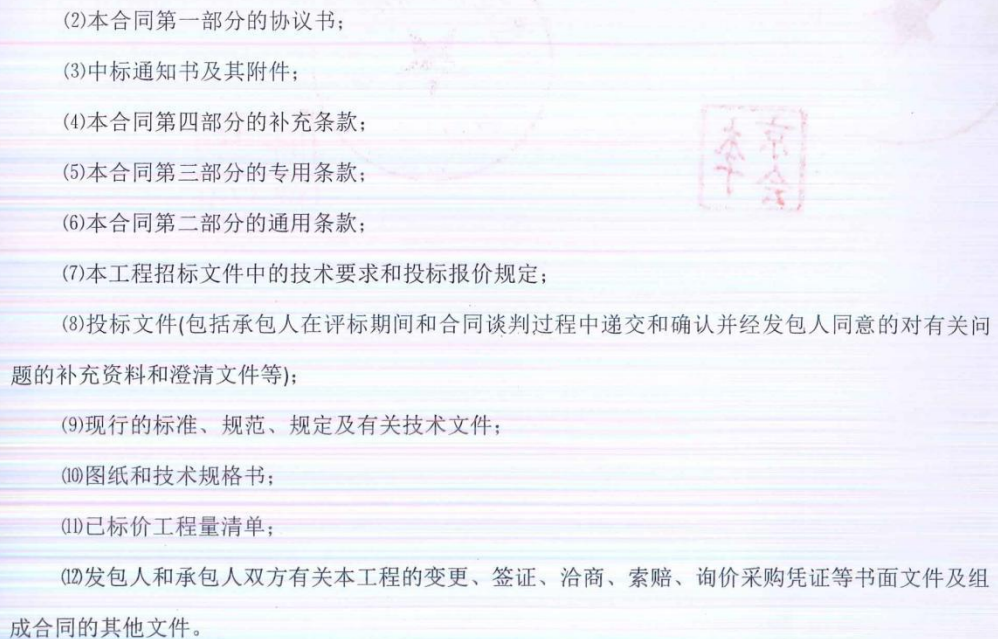 ⑵本合同第一部分的协议书；
⑶中标通知书及其附件；
⑷本合同第四部分的补充条款；
⑸本合同第三部分的专用条款；
⑹本合同第二部分的通用条款；
⑺本工程招标文件中的技术要求和投标报价规定；
⑻投标文件(包括承包人在评标期间和合同谈判过程中递交和确认并经发包人同意的对有关问
题的补充资料和澄清文件等)；
⑼现行的标准、规范、规定及有关技术文件；
⑽图纸和技术规格书；
⑾已标价工程量清单；
⑿发包人和承包人双方有关本工程的变更、签证、洽商、索赔、询价采购凭证等书面文件及组
成合同的其他文件。